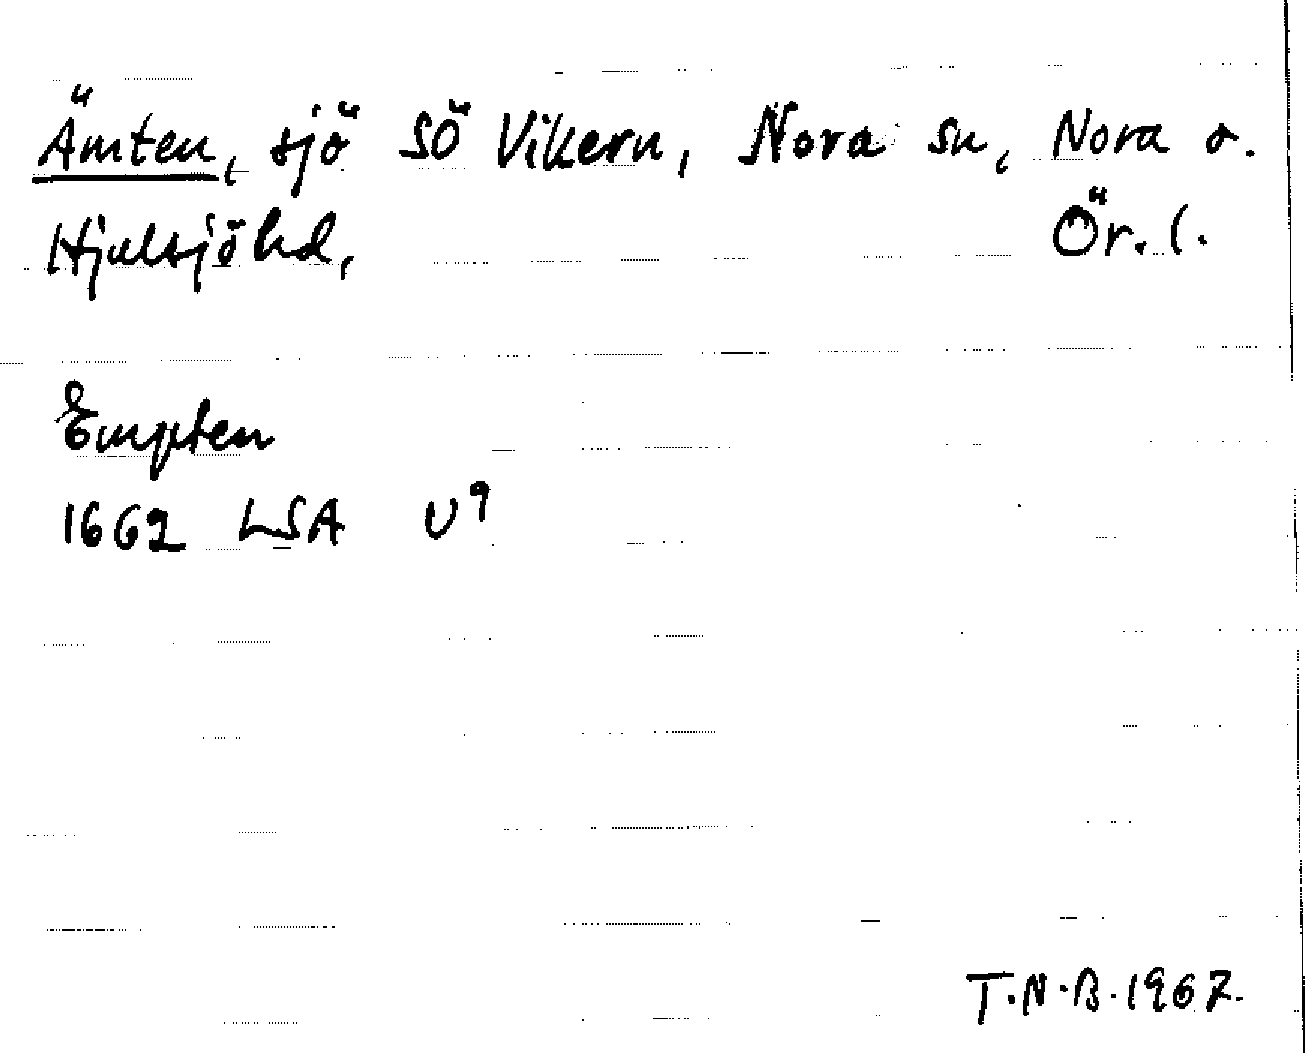 Ämten, sjö SÖ Vikern, Nora sn, Nora o.
Hjulsjö hd, Ör. l.
Empten
1662 LSA U9
T.N.B. 1967.